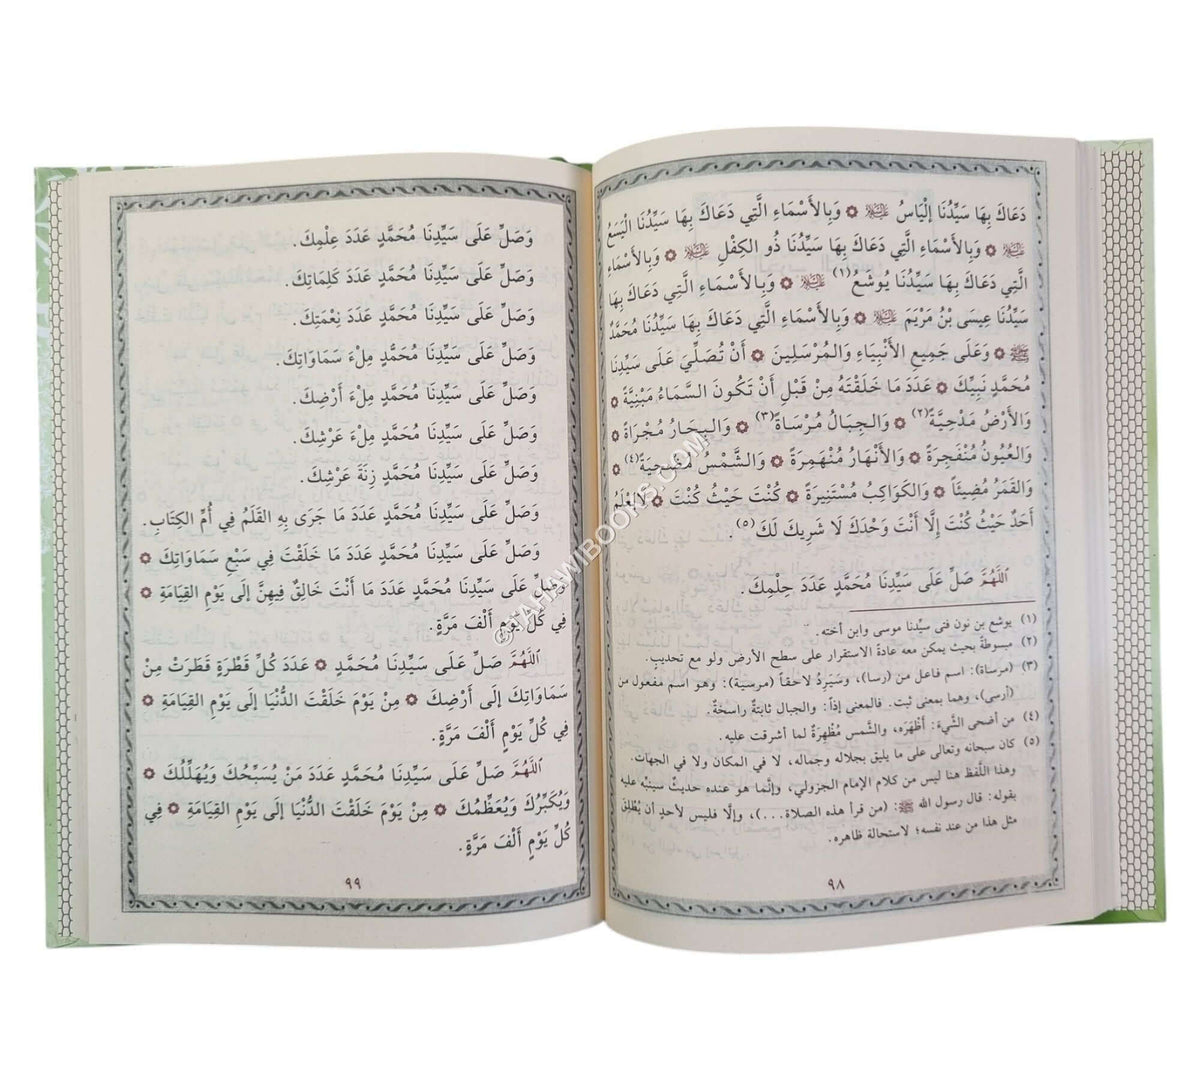 دَعَاكَ بِهَا سَيِّدُنَا إِلْيَاسُ عَلَيْهِ السَّلَامُ ۞ وَبِالأَسْمَاءِ الَّتِي دَعَاكَ بِهَا سَيِّدُنَا الْيَسَعُ
عَلَيْهِ السَّلَامُ ۞ وَبِالأَسْمَاءِ الَّتِي دَعَاكَ بِهَا سَيِّدُنَا ذُو الكِفْلِ عَلَيْهِ السَّلَامُ ۞ وَبِالأَسْمَاءِ
الَّتِي دَعَاكَ بِهَا سَيِّدُنَا يُوشَعُ(١) عَلَيْهِ السَّلَامُ ۞ وَبِالأَسْمَاءِ الَّتِي دَعَاكَ بِهَا
سَيِّدُنَا عِيسَى بْنُ مَرْيَمَ عَلَيْهِ السَّلَامُ ۞ وَبِالأَسْمَاءِ الَّتِي دَعَاكَ بِهَا سَيِّدُنَا مُحَمَّدٌ
ﷺ ۞ وَعَلَى جَمِيعِ الأَنْبِيَاءِ وَالمُرْسَلِينَ ۞ أَنْ تُصَلِّيَ عَلَى سَيِّدِنَا
مُحَمَّدٍ نَبِيِّكَ ۞ عَدَدَ مَا خَلَقْتَهُ مِنْ قَبْلِ أَنْ تَكُونَ السَّمَاءُ مَبْنِيَّةً ۞
وَالأَرْضُ مَدْحِيَّةً(٢) ۞ وَالجِبَالُ مُرْسَاةً(٣) ۞ وَالبِحَارُ مُجْرَاةً ۞
وَالعُيُونُ مُنْفَجِرَةً ۞ وَالأَنْهَارُ مُنْهَمِرَةً ۞ وَالشَّمْسُ مُضْحِيَةً(٤) ۞
وَالقَمَرُ مُضِيئاً ۞ وَالكَوَاكِبُ مُسْتَنِيرَةً ۞ كُنْتَ حَيْثُ كُنْتَ ۞ لَا يَعْلَمُ
أَحَدٌ حَيْثُ كُنْتَ إِلَّا أَنْتَ وَحْدَكَ لَا شَرِيكَ لَكَ(٥).
اللَّهُمَّ صَلِّ عَلَى سَيِّدِنَا مُحَمَّدٍ عَدَدَ حِلْمِكَ.
(١) يوشع بن نون فتى سيِّدنا موسى وابن أخته.
(٢) مبسوطةً بحيث يمكن معه عادةً الاستقرار على سطح الأرض ولو مع تحديبٍ.
(٣) (مرساة): اسم فاعل من (رسا)، وسَيَرِدُ لاحقاً (مرسية): وهو اسم مفعول من
(أرسى)، وهما بمعنى ثبت. فالمعنى إذاً: والجبال ثابتةٌ راسخةٌ.
(٤) من أضحى الشَّيءَ: أظهَرَه، والشَّمس مُظهِرةٌ لما أشرقت عليه.
(٥) كان سبحانه وتعالى على ما يليق بجلاله وجماله، لا في المكان ولا في الجهات.
وهذا اللَّفظ هنا ليس من كلام الإمام الجزولي، وإنَّما هو عنده حديثٌ سينبِّه عليه
بقوله: قال رسول الله ﷺ: (من قرأ هذه الصلاة...)، وإلَّا فليس لأحدٍ أن يُطلِقَ
مثل هذا من عند نفسه؛ لاستحالة ظاهره.
٩٨
وَصَلِّ عَلَى سَيِّدِنَا مُحَمَّدٍ عَدَدَ عِلْمِكَ.
وَصَلِّ عَلَى سَيِّدِنَا مُحَمَّدٍ عَدَدَ كَلِمَاتِكَ.
وَصَلِّ عَلَى سَيِّدِنَا مُحَمَّدٍ عَدَدَ نِعْمَتِكَ.
وَصَلِّ عَلَى سَيِّدِنَا مُحَمَّدٍ مِلْءَ سَمَاوَاتِكَ.
وَصَلِّ عَلَى سَيِّدِنَا مُحَمَّدٍ مِلْءَ أَرْضِكَ.
وَصَلِّ عَلَى سَيِّدِنَا مُحَمَّدٍ مِلْءَ عَرْشِكَ.
وَصَلِّ عَلَى سَيِّدِنَا مُحَمَّدٍ زِنَةَ عَرْشِكَ.
وَصَلِّ عَلَى سَيِّدِنَا مُحَمَّدٍ عَدَدَ مَا جَرَى بِهِ القَلَمُ فِي أُمِّ الكِتَابِ.
وَصَلِّ عَلَى سَيِّدِنَا مُحَمَّدٍ عَدَدَ مَا خَلَقْتَ فِي سَبْعِ سَمَاوَاتِكَ ۞
وَصَلِّ عَلَى سَيِّدِنَا مُحَمَّدٍ عَدَدَ مَا أَنْتَ خَالِقٌ فِيهِنَّ إِلَى يَوْمِ القِيَامَةِ ۞
فِي كُلِّ يَوْمٍ أَلْفَ مَرَّةٍ.
اللَّهُمَّ صَلِّ عَلَى سَيِّدِنَا مُحَمَّدٍ ۞ عَدَدَ كُلِّ قَطْرَةٍ قَطَرَتْ مِنْ
سَمَاوَاتِكَ إِلَى أَرْضِكَ ۞ مِنْ يَوْمَ خَلَقْتَ الدُّنْيَا إِلَى يَوْمِ القِيَامَةِ ۞
فِي كُلِّ يَوْمٍ أَلْفَ مَرَّةٍ.
اللَّهُمَّ صَلِّ عَلَى سَيِّدِنَا مُحَمَّدٍ عَدَدَ مَنْ يُسَبِّحُكَ وَيُهَلِّلُكَ ۞
وَيُكَبِّرُكَ وَيُعَظِّمُكَ ۞ مِنْ يَوْمَ خَلَقْتَ الدُّنْيَا إِلَى يَوْمِ القِيَامَةِ ۞ فِي
كُلِّ يَوْمٍ أَلْفَ مَرَّةٍ.
٩٩
©TAHAWIBOOKS.COM